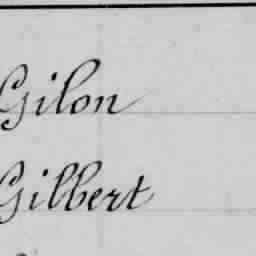 Gilon
Gilbert